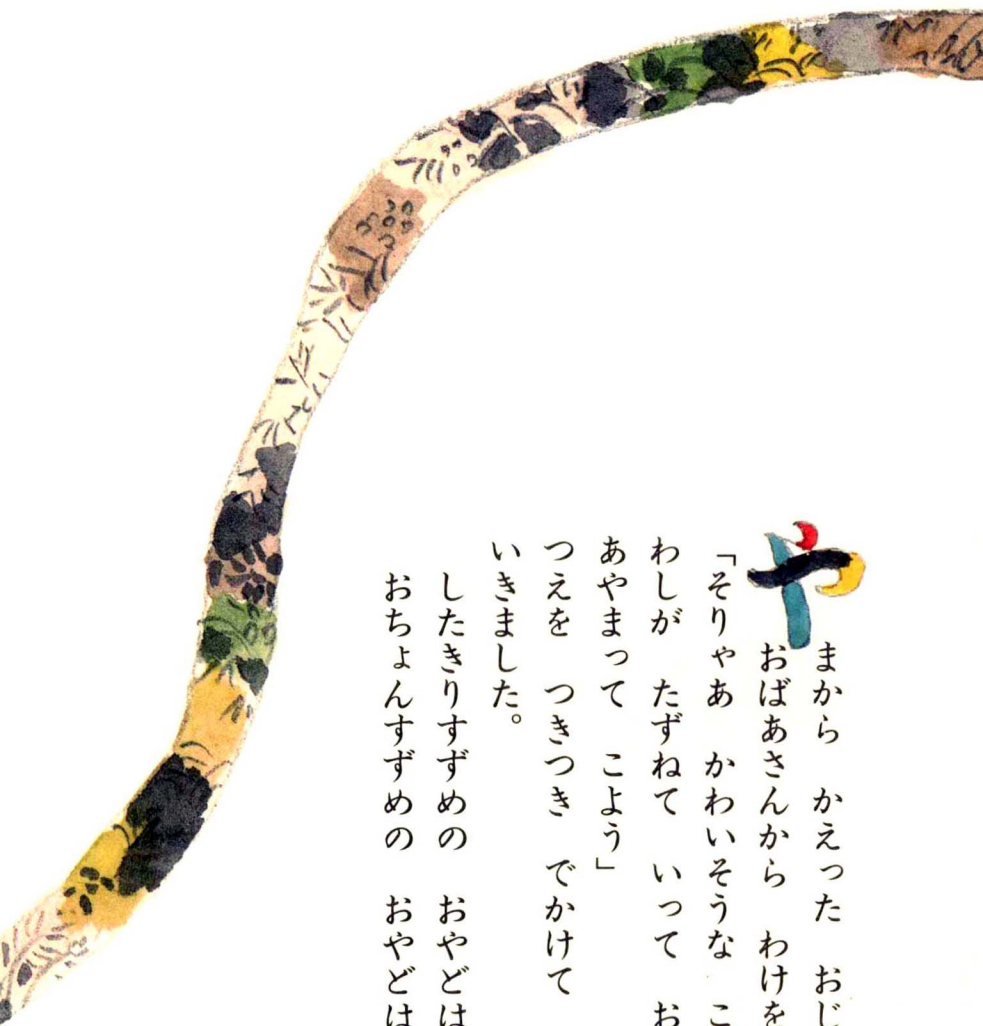 やまから　かえった　おじ
おばあさんから　わけを
「そりゃあ　かわいそうな　こ
わしが　たずねて　いって　お
あやまって　こよう」
つえを　つきつき　でかけて
いきました。
したきりすずめの　おやどは
おちょんすずめの　おやどは